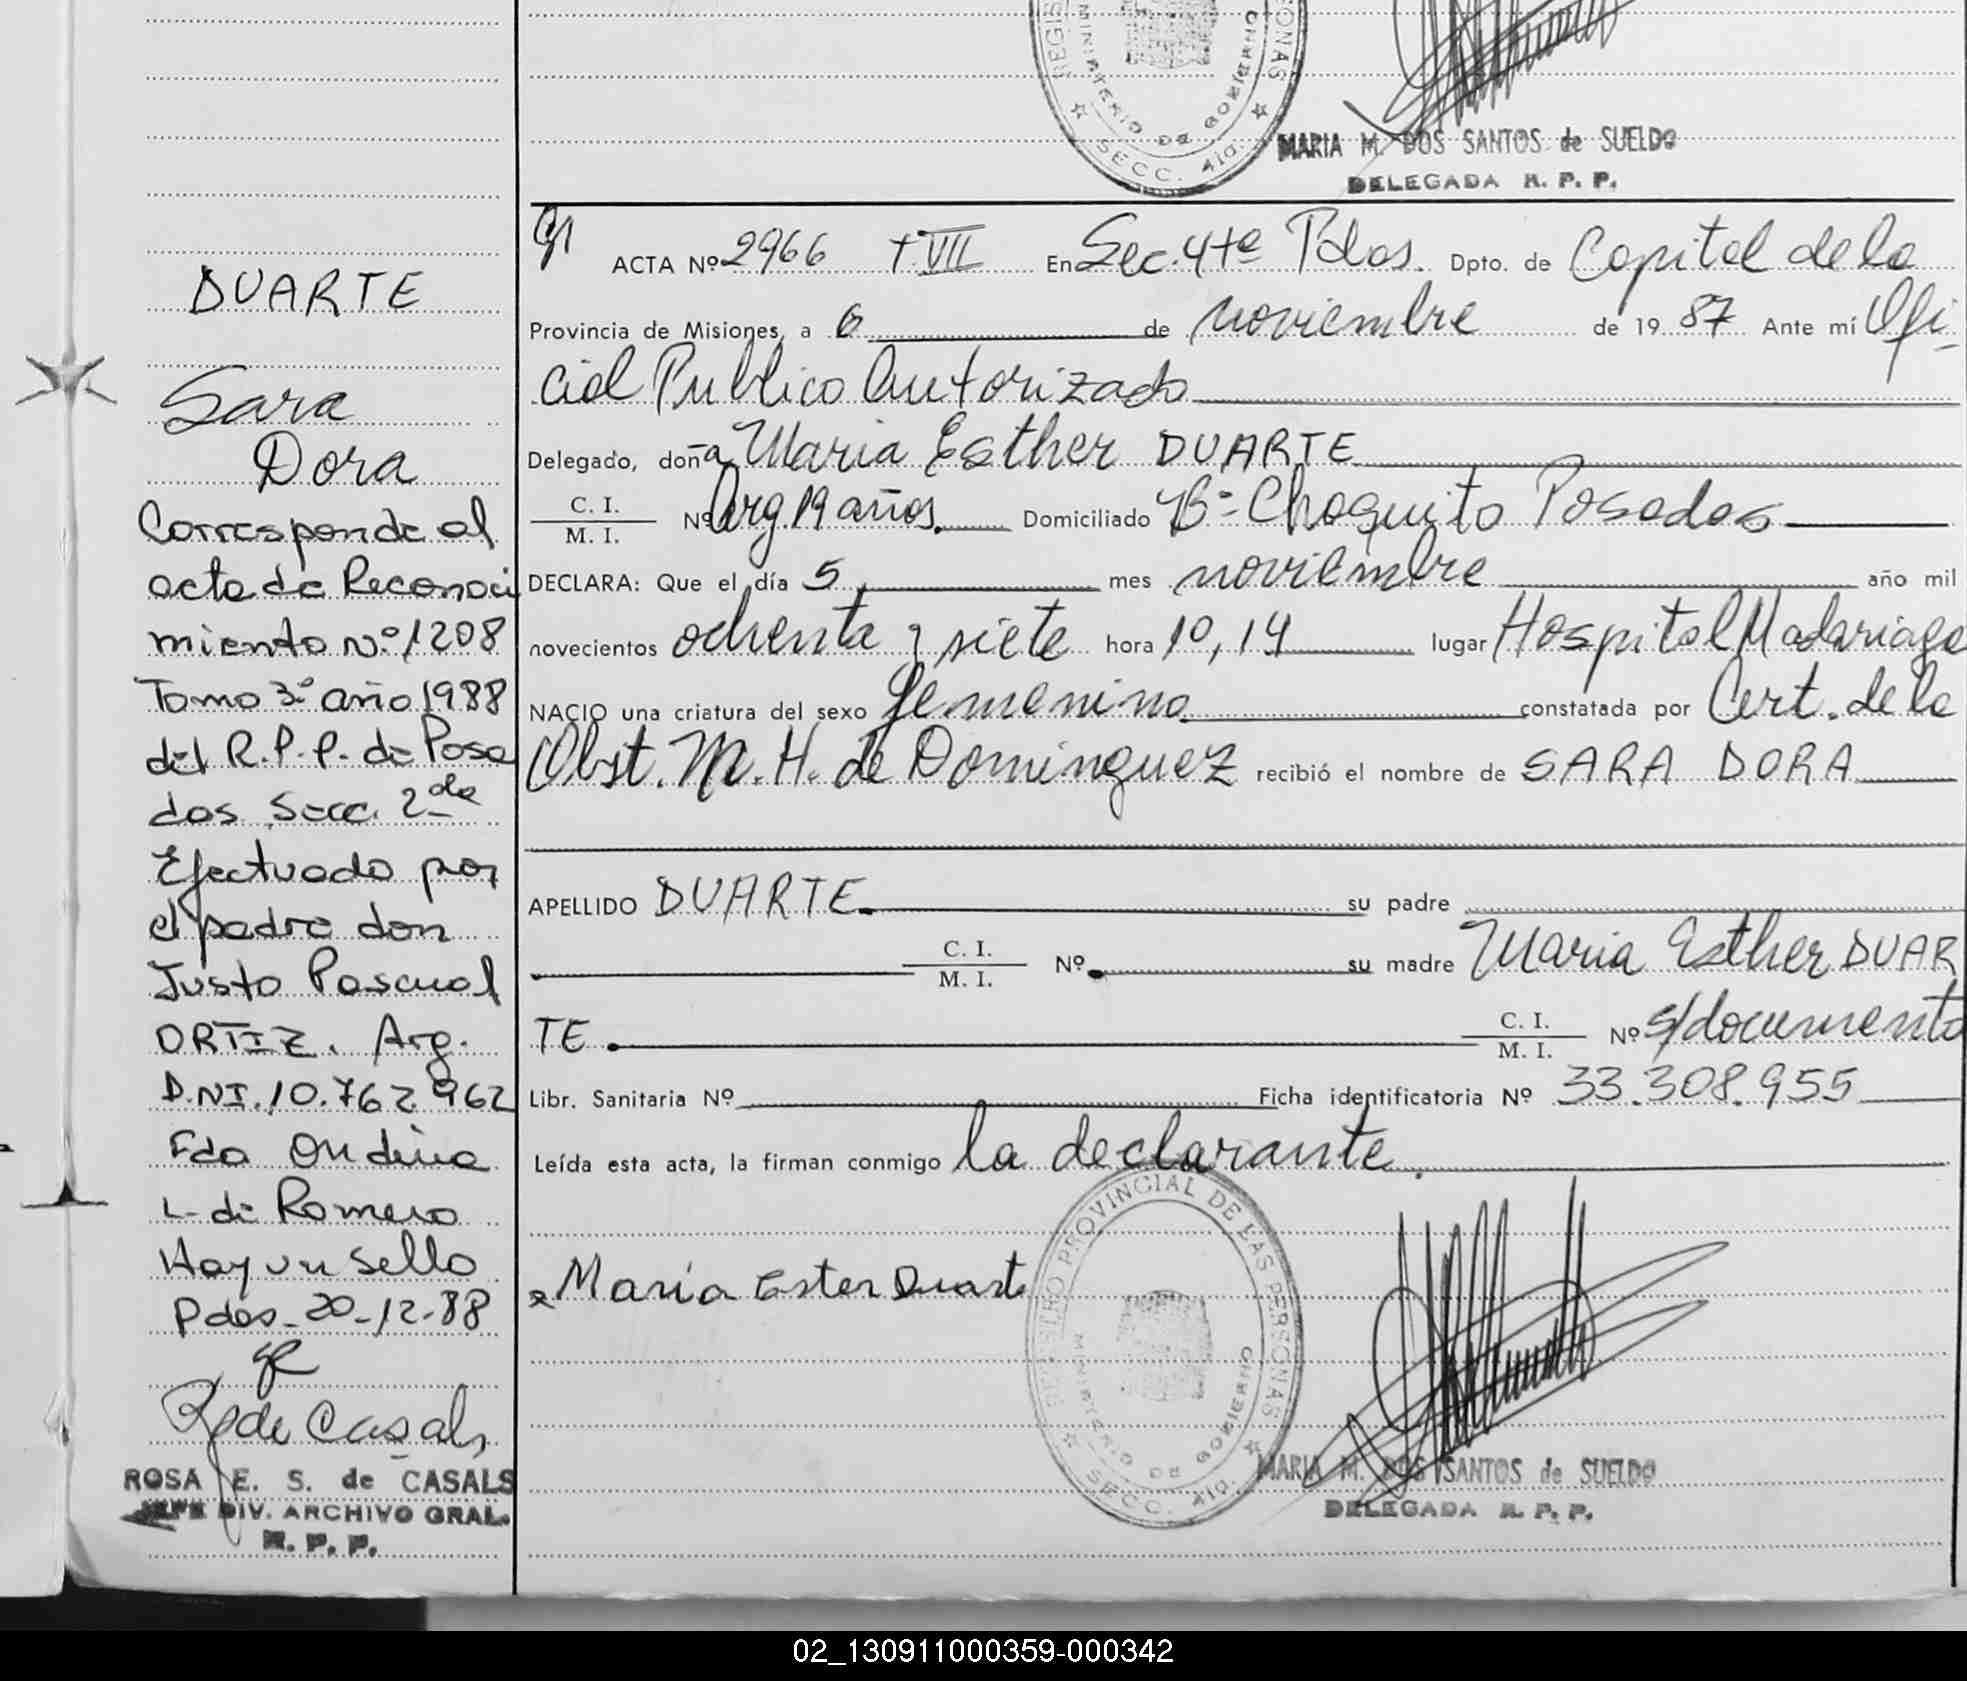 REGIS ONAS
MINISTERIO DE GOBIERNO
SECC. 4ta.
MARIA M. DOS SANTOS de SUELDO
DELEGADA R. P. P.
DUARTE
Sara
Dora
Corresponde al
acta de Reconoci
miento Nº 1208
Tomo 3º año 1988
del R.P.P. de Posa
das Secc. 2da
Efectuado por
el padre don
Justo Pascual
ORTIZ. Arg.
D.NI.10.762.962
Fdo Ondina
L. de Romero
Hay un sello
Pdas-20-12-88
R de Casals
ROSA E. S. de CASALS
JEFE DIV. ARCHIVO GRAL.
R. P. P.
ACTA Nº 2966 T.VII En Sec. 4ta Pdas. Dpto. de Capital de la
Provincia de Misiones, a 6 de noviembre de 19 87 Ante mí Ofi-
cial Publico Autorizado
Delegado, doña Maria Esther DUARTE
C. I.
M. I. Nº Arg. 19 años. Domiciliado Bº Chaquito Posadas
DECLARA: Que el día 5 mes noviembre año mil
novecientos ochenta y siete hora 10,14 lugar Hospital Madariaga
NACIO una criatura del sexo femenino constatada por Cert. de la
Obst. M. H. de Dominguez recibió el nombre de SARA DORA
APELLIDO DUARTE su padre
C. I.
M. I. Nº su madre Maria Esther DUAR
TE. C. I.
M. I. Nº s/documento
Libr. Sanitaria Nº Ficha identificatoria Nº 33.308.955
Leída esta acta, la firman conmigo la declarante.
Maria Ester Duarte
REGISTRO PROVINCIAL DE LAS PERSONAS
MINISTERIO DE GOBIERNO
SECC. 4ta.
MARIA M. DOS SANTOS de SUELDO
DELEGADA R. P. P.
02_130911000359-000342